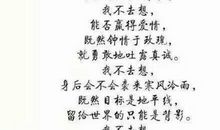 我不去想，
能否赢得爱情，
既然钟情于玫瑰，
就勇敢地吐露真诚。
我不去想，
身后会不会袭来寒风冷雨，
既然目标是地平线，
留给世界的只能是背影。
我不去想，